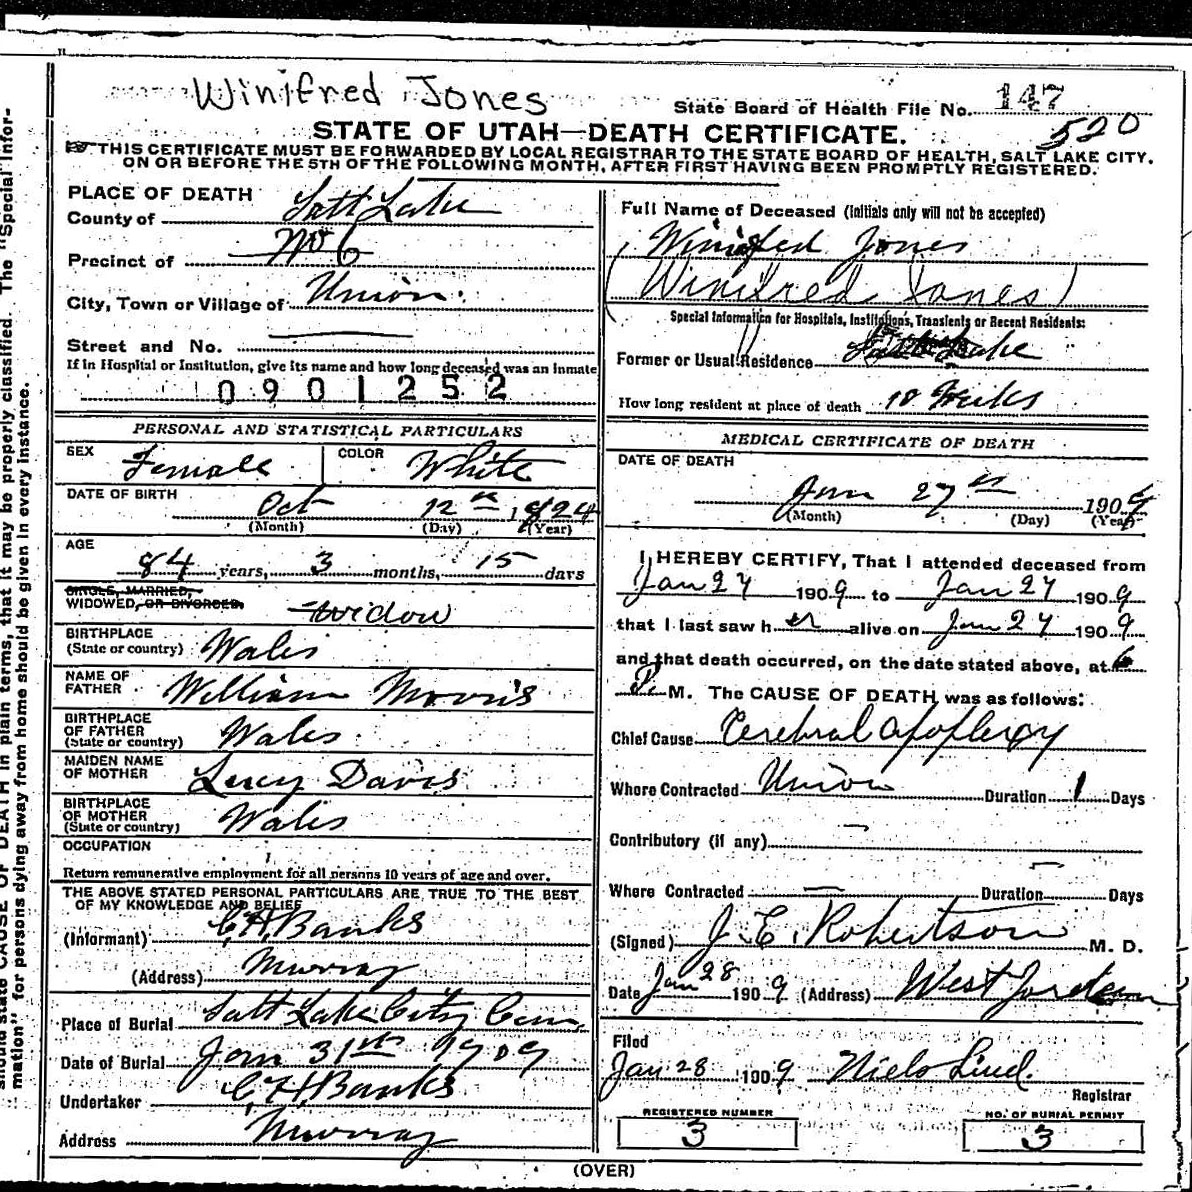 Winifred Jones
State Board of Health File No. 147
520
STATE OF UTAH—DEATH CERTIFICATE.
THIS CERTIFICATE MUST BE FORWARDED BY LOCAL REGISTRAR TO THE STATE BOARD OF HEALTH, SALT LAKE CITY,
ON OR BEFORE THE 5TH OF THE FOLLOWING MONTH, AFTER FIRST HAVING BEEN PROMPTLY REGISTERED.
PLACE OF DEATH
County of Salt Lake
Precinct of No 6
City, Town or Village of Union.
Street and No.
If in Hospital or Institution, give its name and how long deceased was an inmate
0901252
PERSONAL AND STATISTICAL PARTICULARS
SEX Female COLOR White
DATE OF BIRTH
Oct 12th 1824
(Month) (Day) (Year)
AGE
84 years, 3 months, 15 days
SINGLE, MARRIED,
WIDOWED, OR DIVORCED. Widow
BIRTHPLACE
(State or country) Wales
NAME OF
FATHER William Morris
BIRTHPLACE
OF FATHER
(State or country) Wales
MAIDEN NAME
OF MOTHER Lucy Davis
BIRTHPLACE
OF MOTHER
(State or country) Wales
OCCUPATION
Return remunerative employment for all persons 10 years of age and over.
THE ABOVE STATED PERSONAL PARTICULARS ARE TRUE TO THE BEST
OF MY KNOWLEDGE AND BELIEF
(Informant) C H Banks
(Address) Murray
Place of Burial Salt Lake City Cem,
Date of Burial Jan 31st 1909
Undertaker C H Banks
Address Murray
Full Name of Deceased (Initials only will not be accepted)
Winifred Jones
(Winifred Jones)
Special Information for Hospitals, Institutions, Transients or Recent Residents:
Former or Usual Residence Salt Lake
How long resident at place of death 10 Weeks
MEDICAL CERTIFICATE OF DEATH
DATE OF DEATH
Jan 27th 1909
(Month) (Day) (Year)
I HEREBY CERTIFY, That I attended deceased from
Jan 27 1909 to Jan 27 1909
that I last saw her alive on Jan 27 1909
and that death occurred, on the date stated above, at 6
P. M. The CAUSE OF DEATH was as follows:
Chief Cause Cerebral apoplexy
Where Contracted Union Duration 1 Days
Contributory (if any)
Where Contracted Duration Days
(Signed) J. E. Robertson M. D.
Date Jan 28 1909 (Address) West Jordan
Filed
Jan 28 1909 Niels Lind.
Registrar
REGISTERED NUMBER
3
NO. OF BURIAL PERMIT
3
(OVER)
should state CAUSE OF DEATH in plain terms, that it may be properly classified. The "Special Infor-
mation" for persons dying away from home should be given in every instance.